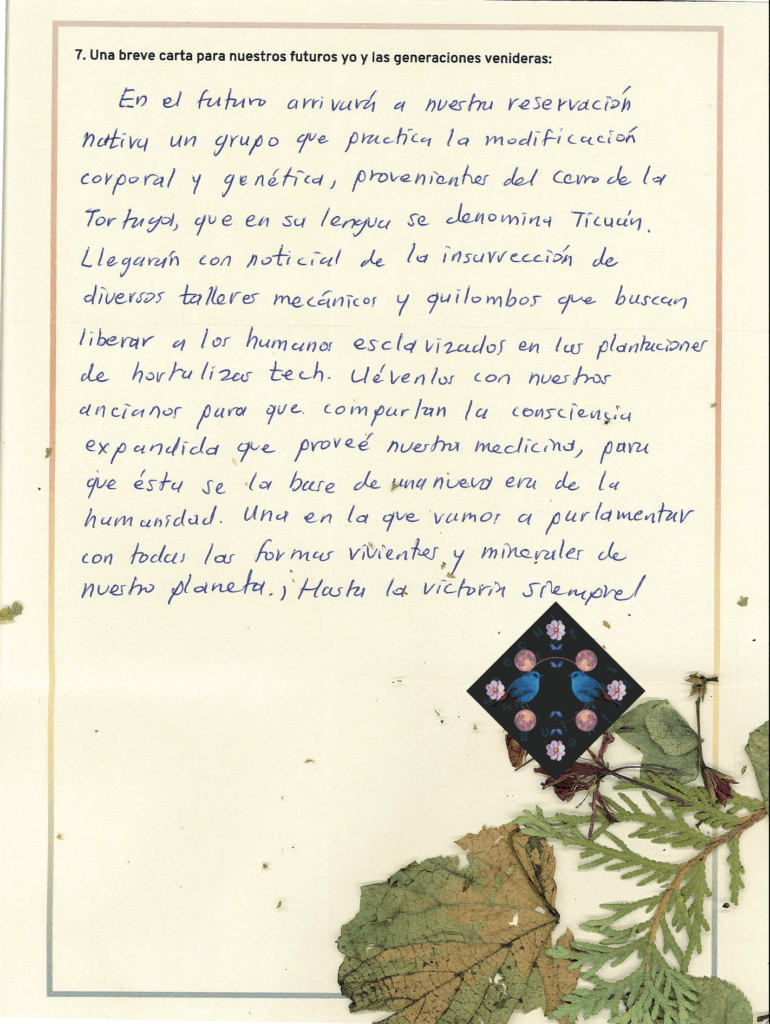 7. Una breve carta para nuestros futuros yo y las generaciones venideras:
En el futuro arrivará a nuestra reservación
nativa un grupo que practica la modificación
corporal y genética, provenientes del Cerro de la
Tortuga, que en su lengua se denomina Ticuán.
Llegarán con noticial de la insurrección de
diversos talleres mecánicos y quilombos que buscan
liberar a los humanos esclavizados en las plantaciones
de hortalizas tech. Llévenlos con nuestros
ancianos para que compartan la consciencia
expandida que proveé nuestra medicina, para
que ésta se la base de una nueva era de la
humanidad. Una en la que vamos a parlamentar
con todas las formas vivientes y minerales de
nuestro planeta. ¡Hasta la victoria siempre!